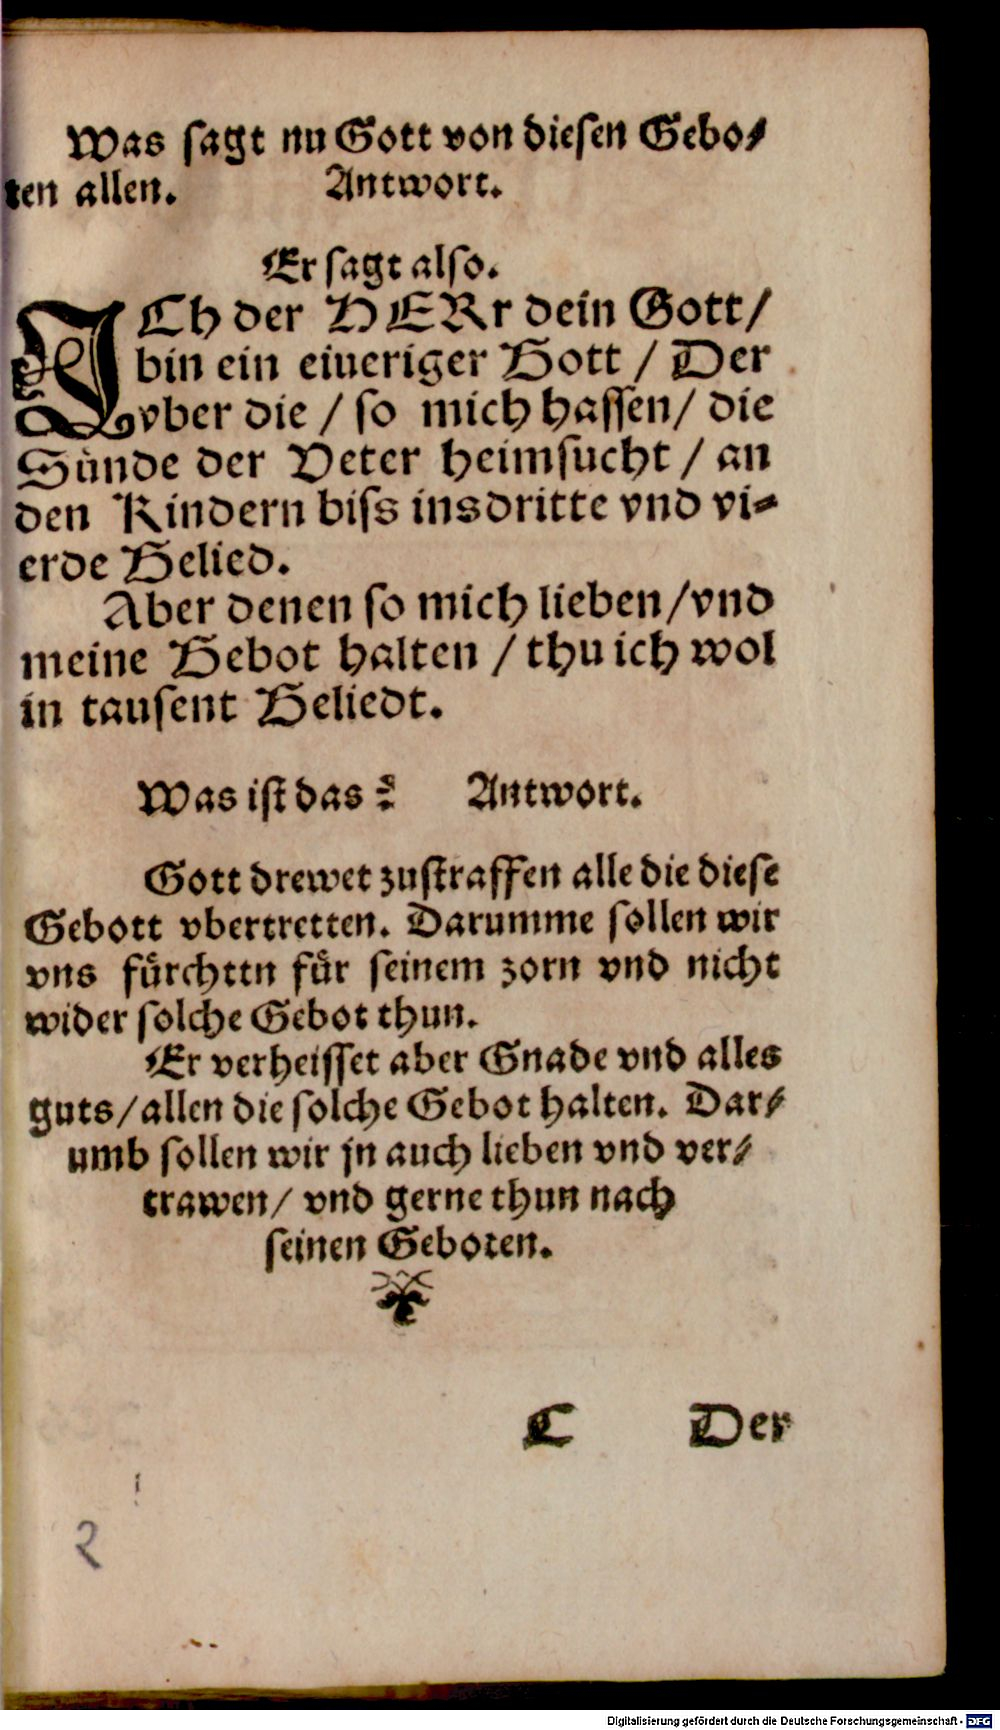 Was sagt nu Gott von diesen Gebo⸗
ten allen. Antwort.
Er sagt also.
ICh der HERr dein Gott/
bin ein eiueriger Gott / Der
vber die / so mich hassen/ die
Sünde der Veter heimsucht / an
den Kindern biss ins dritte vnd vi⸗
erde Gelied.
Aber denen so mich lieben/vnd
meine Gebot halten / thu ich wol
in tausent Geliedt.
Was ist das? Antwort.
Gott drewet zustraffen alle die diese
Gebott vbertretten. Darumme sollen wir
vns fürchttn für seinem zorn vnd nicht
wider solche Gebot thun.
Er verheisset aber Gnade vnd alles
guts/allen die solche Gebot halten. Dar⸗
umb sollen wir jn auch lieben vnd ver⸗
trawen/ vnd gerne thun nach
seinen Geboten.
C Der
2
Digitalisierung gefördert durch die Deutsche Forschungsgemeinschaft - DFG